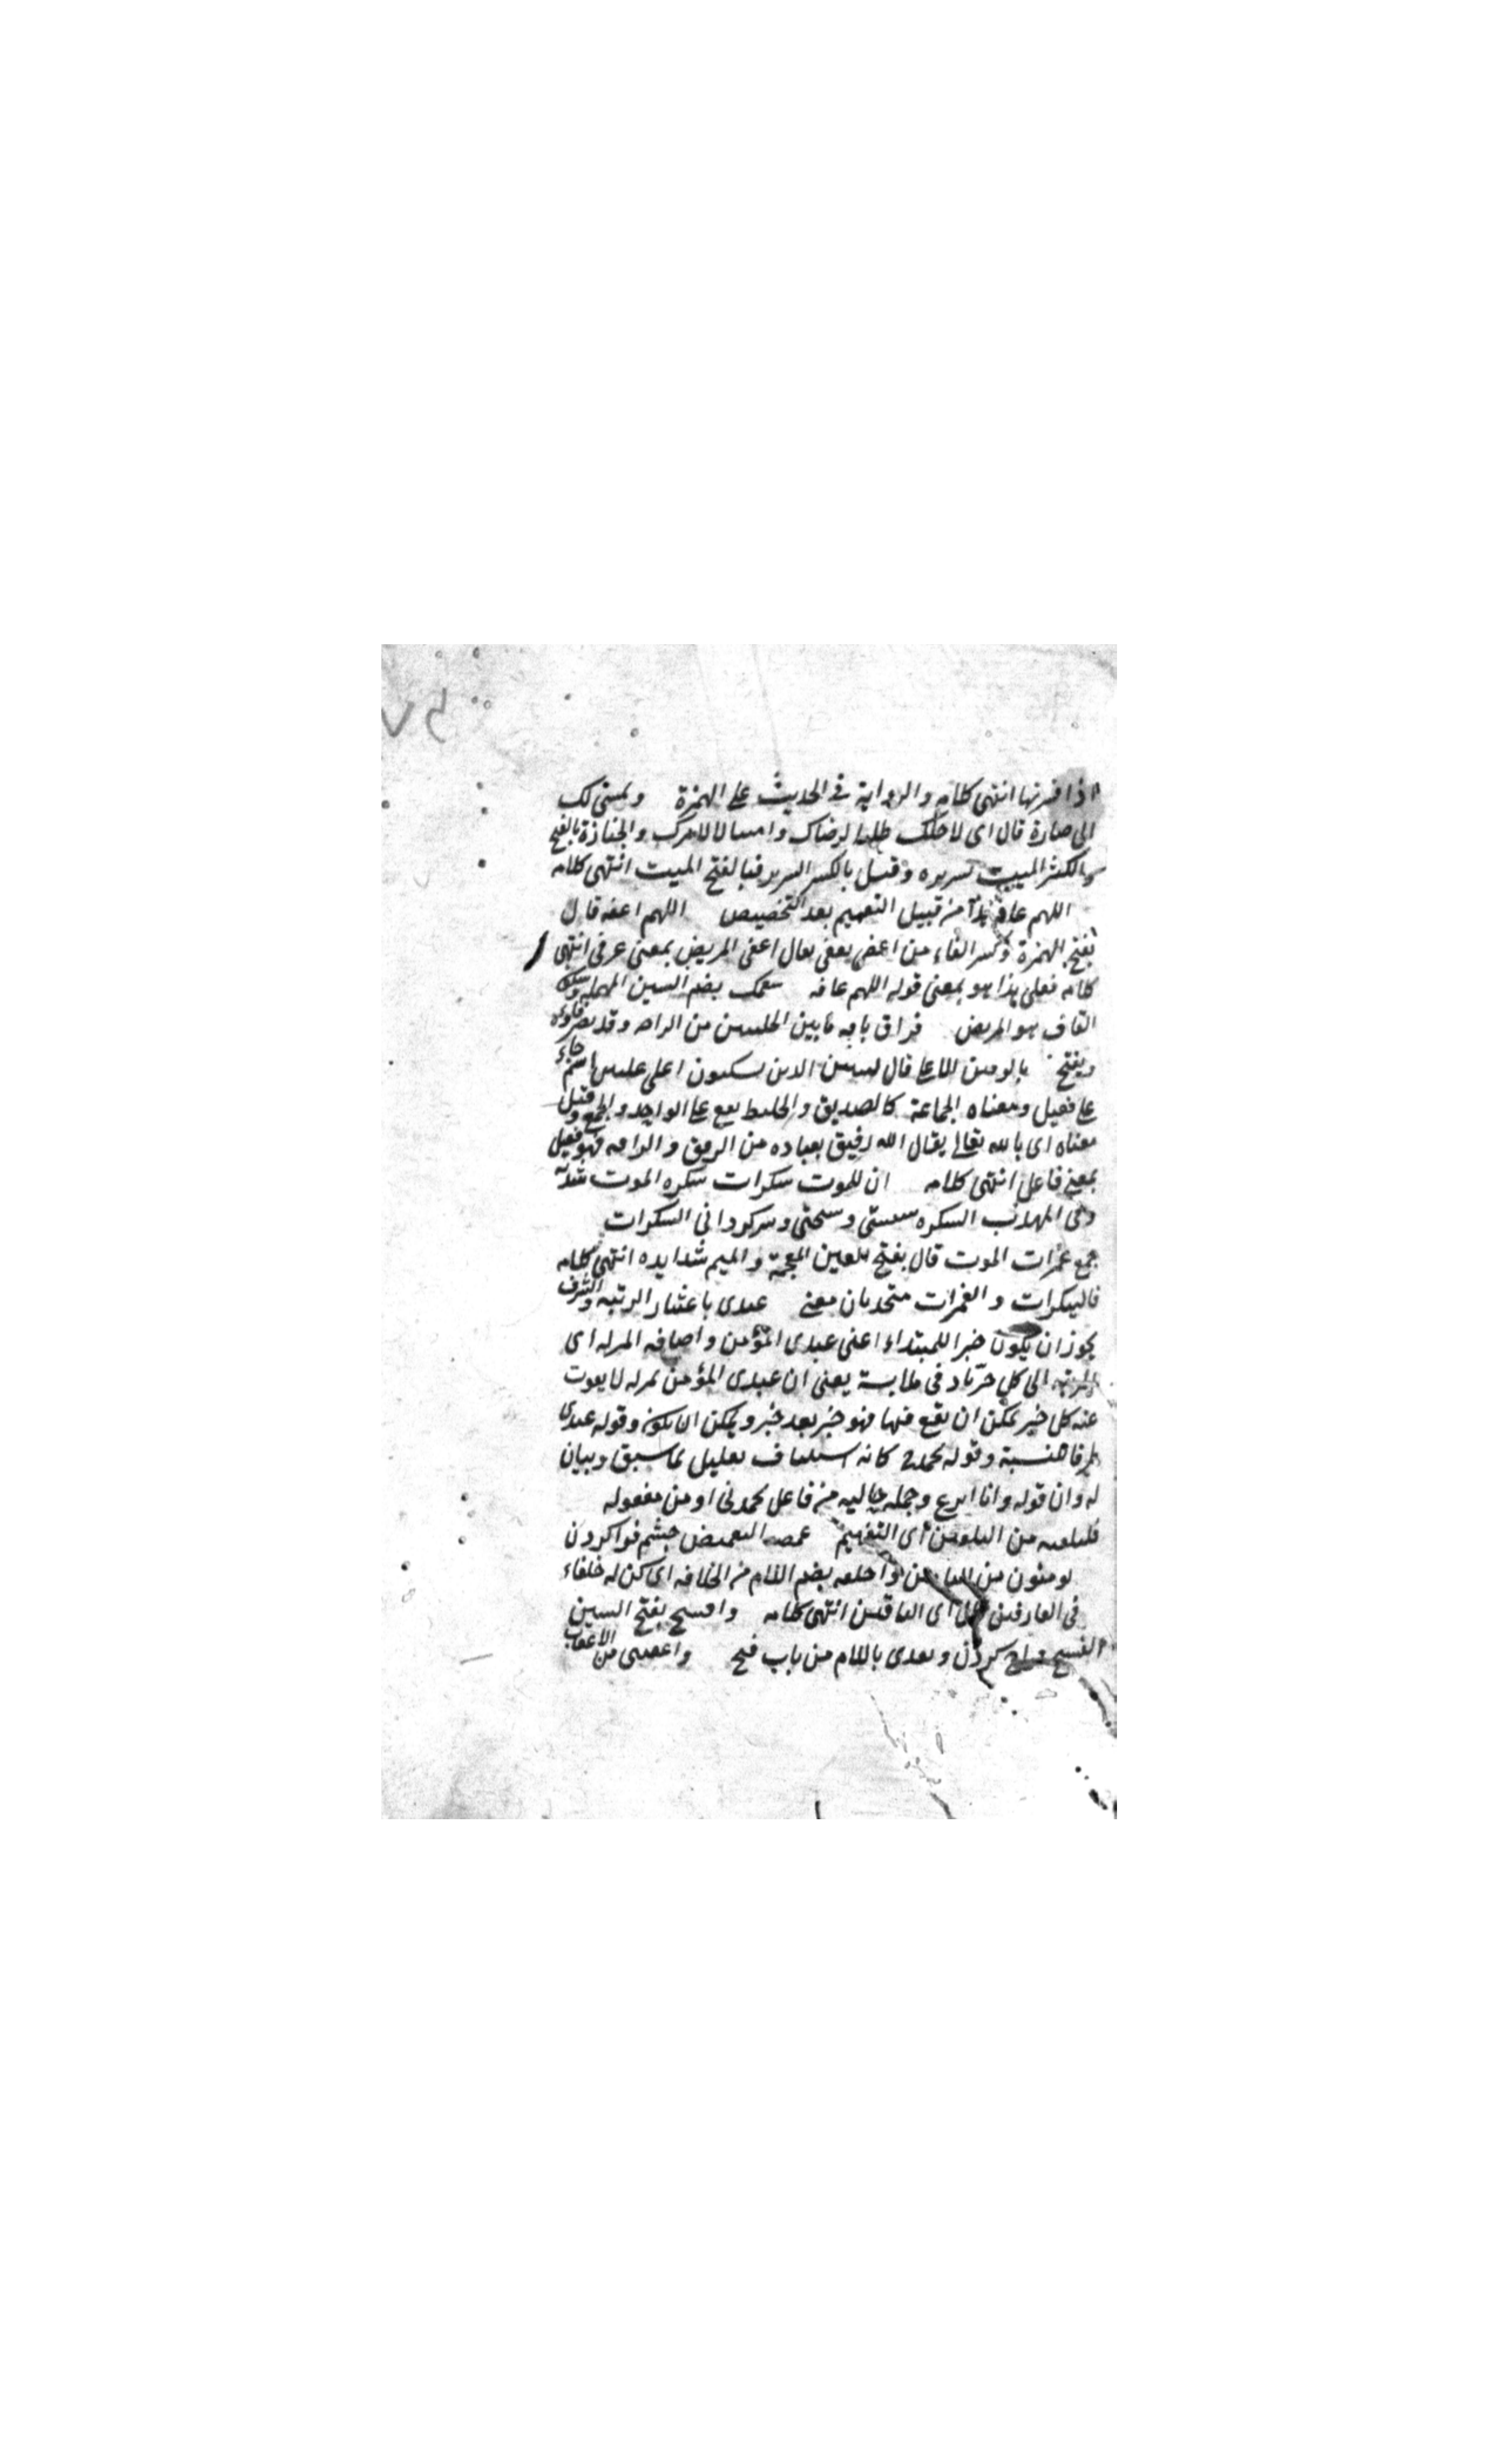 اذا انتهى كلامه والرواية فى الحديث على الهمزة ويمشى لك
الى قال اى لاجلك طلبا لرضاك وامتثالا لامرك والجنازة بالفتح
وبالكسر الميت بسريره وقيل بالكسر السرير وبالفتح الميت انتهى كلامه
اللهم عافه هذا من قبيل التعميم بعد التخصيص اللهم اعفه قال
بفتح الهمزة وكسر الفاء من اعفى يعفى يقال اعفى المريض بمعنى عوفى انتهى
كلامه فعلى هذا هو بمعنى قوله اللهم عافه سقمك بضم السين المهملة وسكون
القاف هو المرض فواق ناقة ما بين الحلبتين من الراحة وقد يضم فاؤه
ويفتح بالرفيق الاعلى قال النبيين الذين يسكنون اعلى عليين اسم جاء
على فعيل ومعناه الجماعة كالصديق والخليط يقع على الواحد والجمع وقيل
معناه اى بالله تعالى يقال الله رفيق بعباده من الرفق والرافة فهو فعيل
بمعنى فاعل انتهى كلامه ان للموت سكرات سكرة الموت شدته
وفى المهذب السكرة سستى وسختى وسركردانى السكرات
جمع غمرات الموت قال بفتح الغين المعجمة والميم شدايده انتهى كلامه
فالسكرات والغمرات متحدتان معنى عبدى باعتبار الرتبة والشرف
يجوز ان يكون خبرا للمبتداء اعنى عبدى المؤمن واضافة المنزلة اى
الرتبة الى كل خير فى ملابسة يعنى ان عبدى المؤمن بمنزلة لا يفوت
عنه كل خير يمكن ان يقع فيها فهو خبر بعد خبر ويمكن ان يكون قوله عندى
وقوله يحمدنى كانه استيناف تعليل لما سبق وبيان
له وان قوله وانا انزع وجملة حالية من فاعل يحمدنى او من مفعوله
فليلقنه من التلقين اى التفهيم غمضه التغميض چشم فرا كردن
يؤمنون من التامين واخلفه بضم اللام من الخلافة اى كن له خلفاء
فى الغابرين اى الباقين انتهى كلامه وافسح بفتح السين
الفسح فراخ كردن ويعدى باللام من باب فتح واعقبنى من الاعقاب